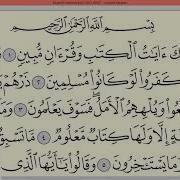 بِسْمِ ٱللَّهِ ٱلرَّحْمَٰنِ ٱلرَّحِيمِ
كَ ءَايَٰتُ ٱلْكِتَٰبِ وَقُرْءَانٍ مُّبِينٍ ١
كَفَرُوا۟ لَوْ كَانُوا۟ مُسْلِمِينَ ٢ ذَرْهُمْ
عُوا۟ وَيُلْهِهِمُ ٱلْأَمَلُ فَسَوْفَ يَعْلَمُونَ ٣ وَمَا
يَةٍ إِلَّا وَلَهَا كِتَابٌ مَّعْلُومٌ ٤ مَّا تَسْبِقُ
مَا يَسْتَـْٔخِرُونَ ٥ وَقَالُوا۟ يَٰٓأَيُّهَا ٱلَّذِى